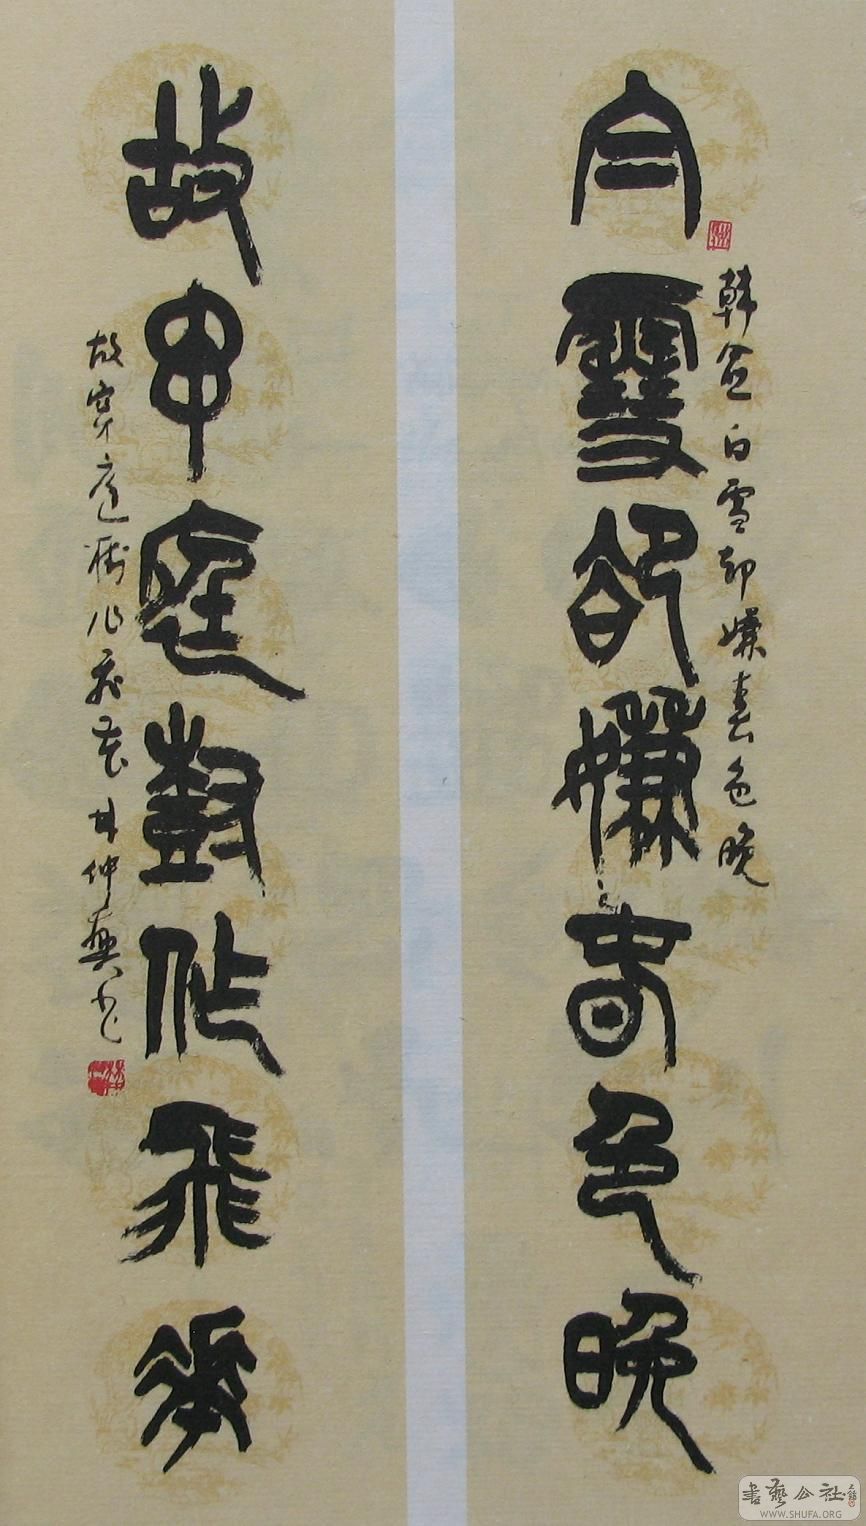 白雪卻嫌春色晚
韓愈白雪却嫌春色晚
故穿庭樹作飛華
故穿庭樹作飛花 林仲興书
書藝公社
WWW.SHUFA.ORG